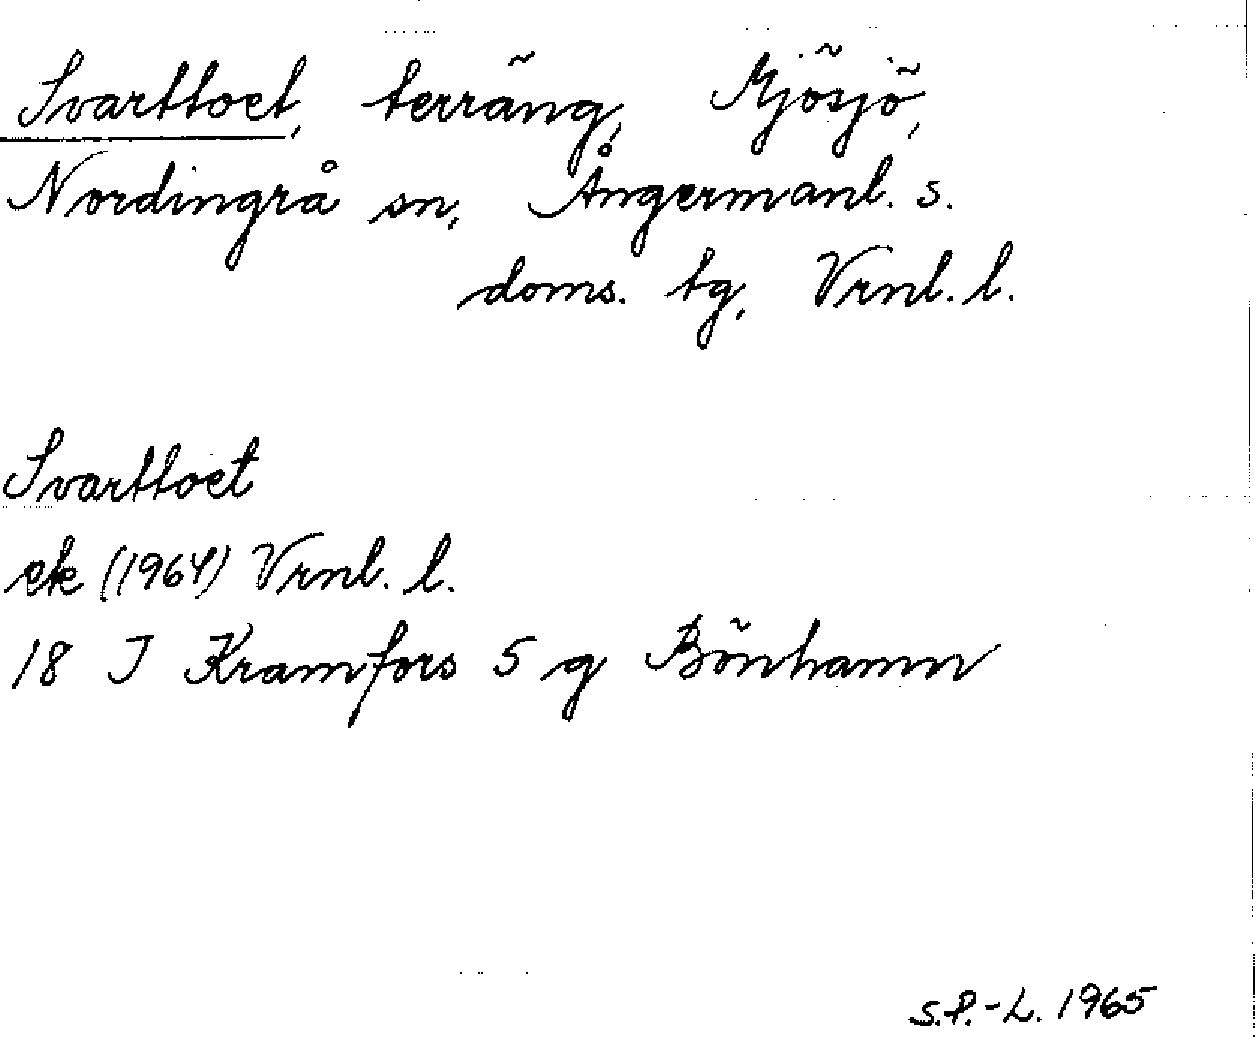 Svarttoet, terräng, Mjösjö,
Nordingrå sn, Ångermanl. s.
doms. tg, Vrnl. l.
Svarttoet
ek (1964) Vrnl. l.
18 I Kramfors 5 g Bönhamn
S.P.-L. 1965